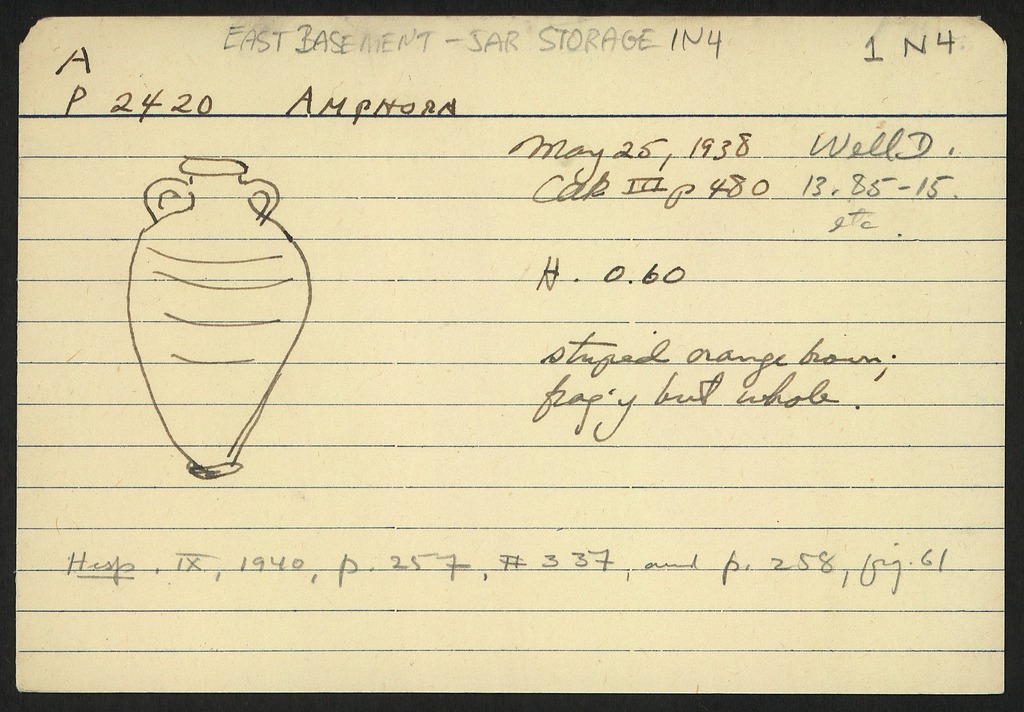 EAST BASEMENT - JAR STORAGE 1N4
1 N 4
A
P 2420 AMPHORA
May 25, 1938 Well D.
III p 480 13.85-15.
etc.
H. 0.60
striped orange brown;
frag'y but whole.
Hesp. IX, 1940, p. 257, # 337, and p. 258, fig. 61